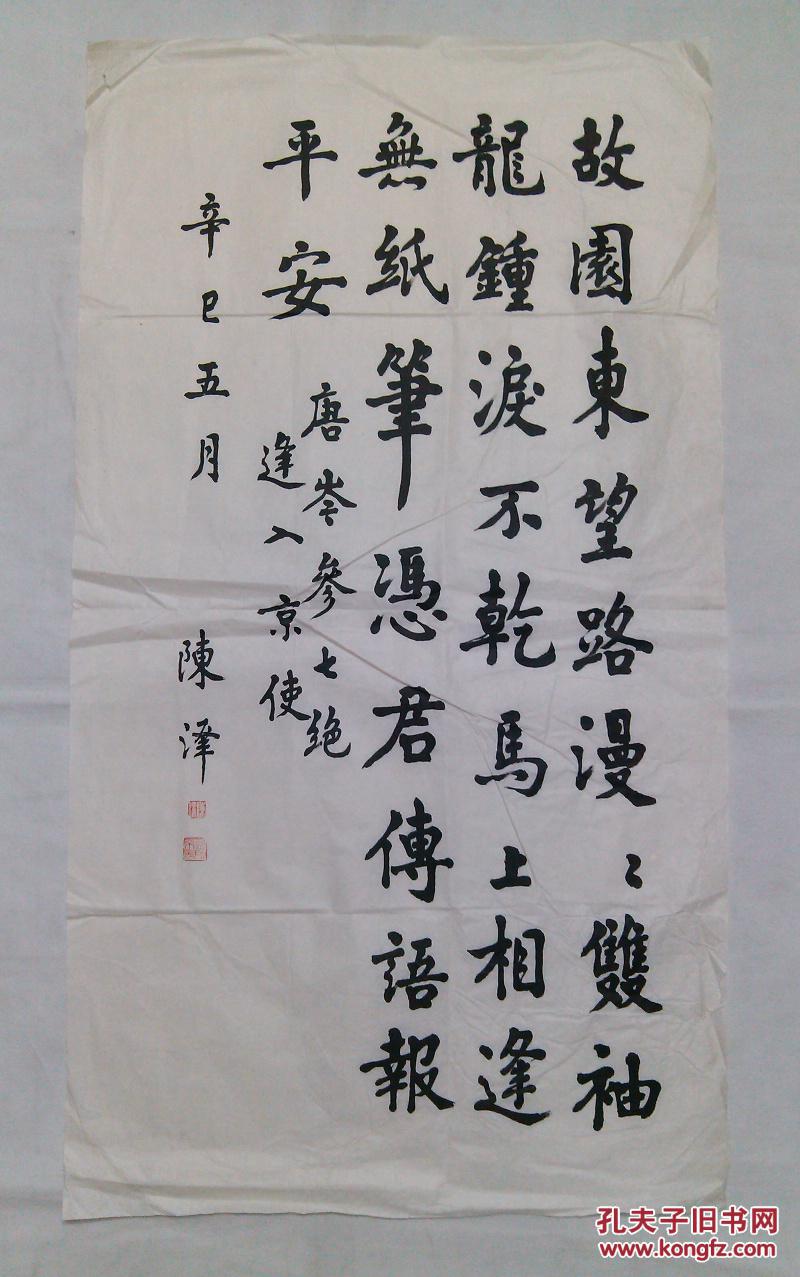 故園東望路漫〻雙袖
龍鍾淚不乾馬上相逢
無紙筆憑君傳語報
平安
唐岑參七绝
逢入京使
辛巳五月
陳澤
孔夫子旧书网
www.kongfz.com